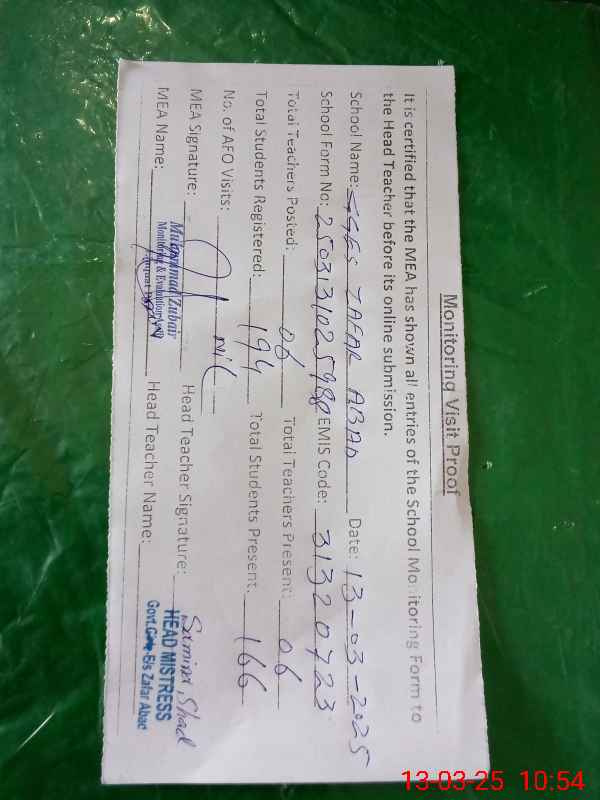 Monitoring Visit Proof
It is certified that the MEA has shown all entries of the School Monitoring Form to
the Head Teacher before its online submission.
School Name: GGES ZAFAR ABAD Date: 13-03-2025
School Form No: EMIS Code: 31320723
Total Teachers Posted: 06 Total Teachers Present: 06
Total Students Registered: 194 Total Students Present. 166
No. of AFO Visits: nil
MEA Signature: Head Teacher Signature: Samina Shad
MEA Name: Muhammad Zubair Head Teacher Name: HEAD MISTRESS
Monitoring & Evaluation
Govt. Zafar Abad
13-03-25 10:54